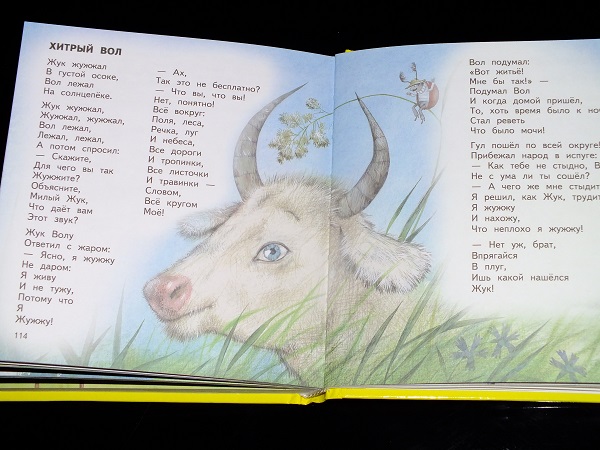 ХИТРЫЙ ВОЛ
Жук жужжал
В густой осоке,
Вол лежал
На солнцепёке.
Жук жужжал,
Жужжал, жужжал,
Вол лежал,
Лежал, лежал,
А потом спросил:
— Скажите,
Для чего вы так
Жужжите?
Объясните,
Милый Жук,
Что даёт вам
Этот звук?
Жук Волу
Ответил с жаром:
— Ясно, я жужжу
Не даром:
Я живу
И не тужу,
Потому что
Я
Жужжу!
114
— Ах,
Так это не бесплатно?
— Что вы, что вы!
Нет, понятно!
Всё вокруг:
Поля, леса,
Речка, луг
И небеса,
Все дороги
И тропинки,
Все листочки
И травинки —
Словом,
Всё кругом
Моё!
Вол подумал:
«Вот житьё!
Мне бы так!» —
Подумал Вол
И когда домой пришёл,
То, хоть время было к
Стал реветь
Что было мочи!
Гул пошёл по всей округе!
Прибежал народ в испуге:
— Как тебе не стыдно,
Не с ума ли ты сошёл?
— А чего же мне
Я решил, как Жук,
Я жужжу
И нахожу,
Что неплохо я жужжу!
— Нет уж, брат,
Впрягайся
В плуг,
Ишь какой нашёлся
Жук!